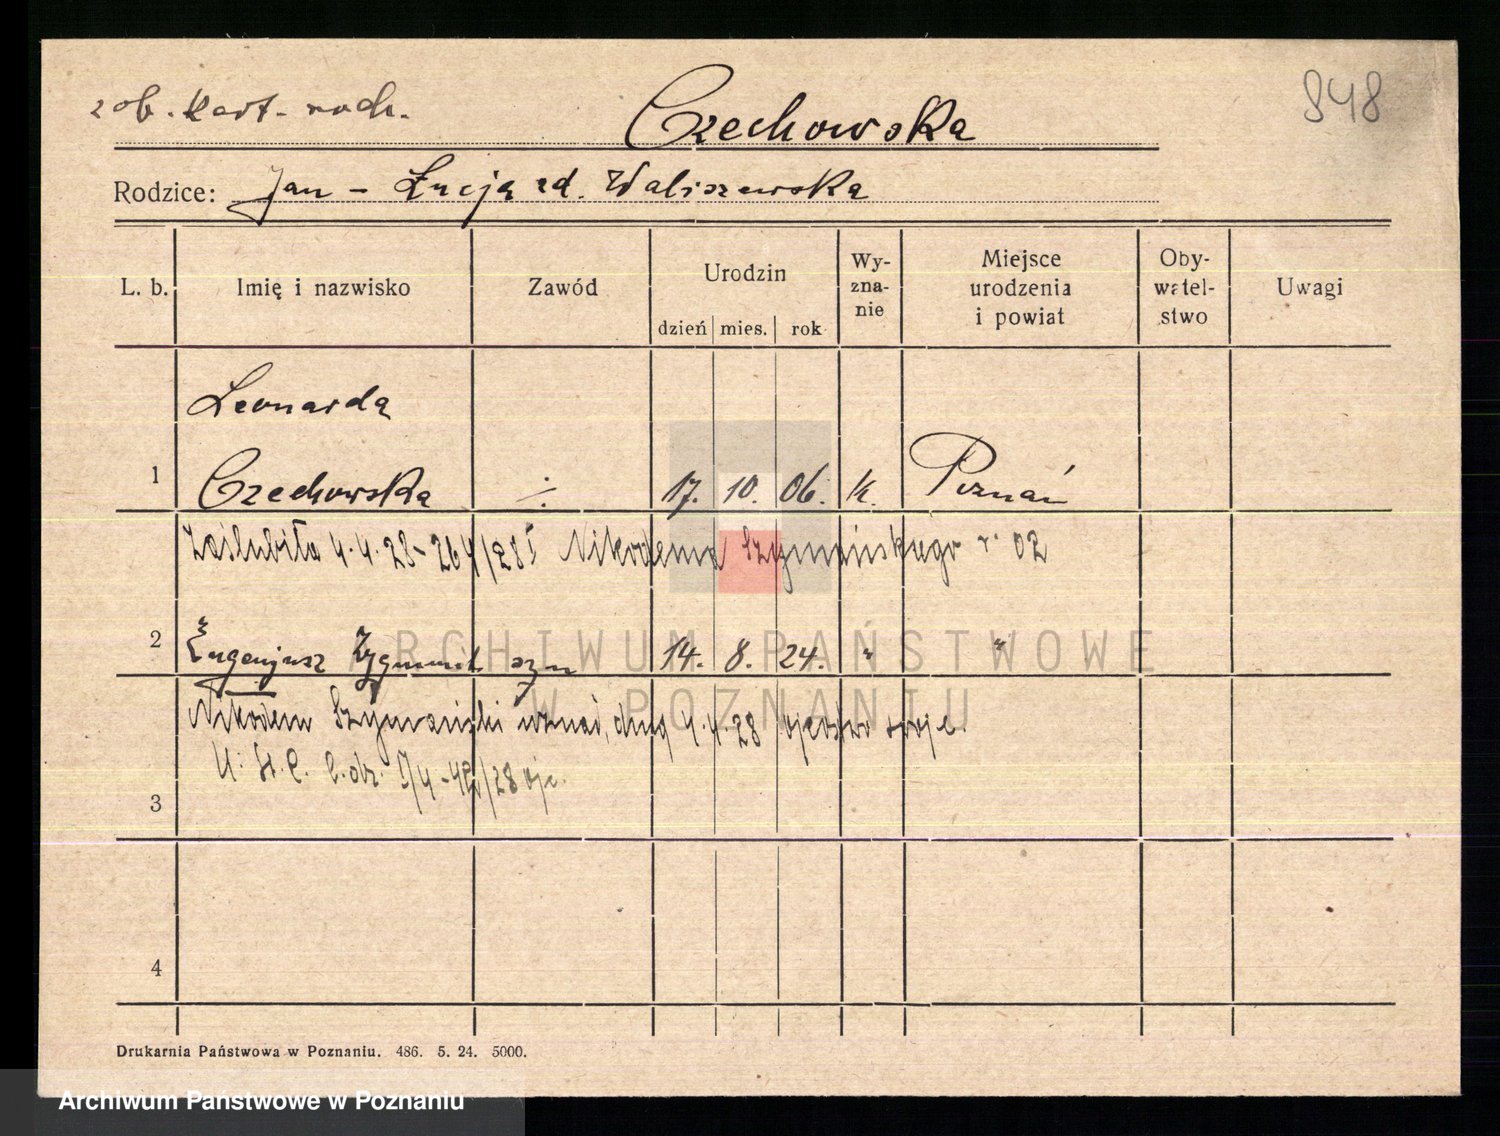 zob. kart. roch.
848
Czechowska
Rodzice: Jan - Łucja zd. Waliszewska
L. b. Imię i nazwisko Zawód Urodzin dzień mies. rok Wy-zna-nie Miejsce urodzenia i powiat Oby-watel-stwo Uwagi
Leonarda
1 Czechowska ./. 17. 10. 06. k. Poznań
Zaślubiła 4.4.28 - 264/28 Nikodema Szymańskiego r. 02
2 Eugenjusz Zygmunt syn 14. 8. 24. " "
Nikodem Szymański uznał, dnia 4.4.28 ojcostwo swoje.
3
4
Drukarnia Państwowa w Poznaniu. 486. 5. 24. 5000.
ARCHIWUM PAŃSTWOWE
W POZNANIU
Archiwum Państwowe w Poznaniu